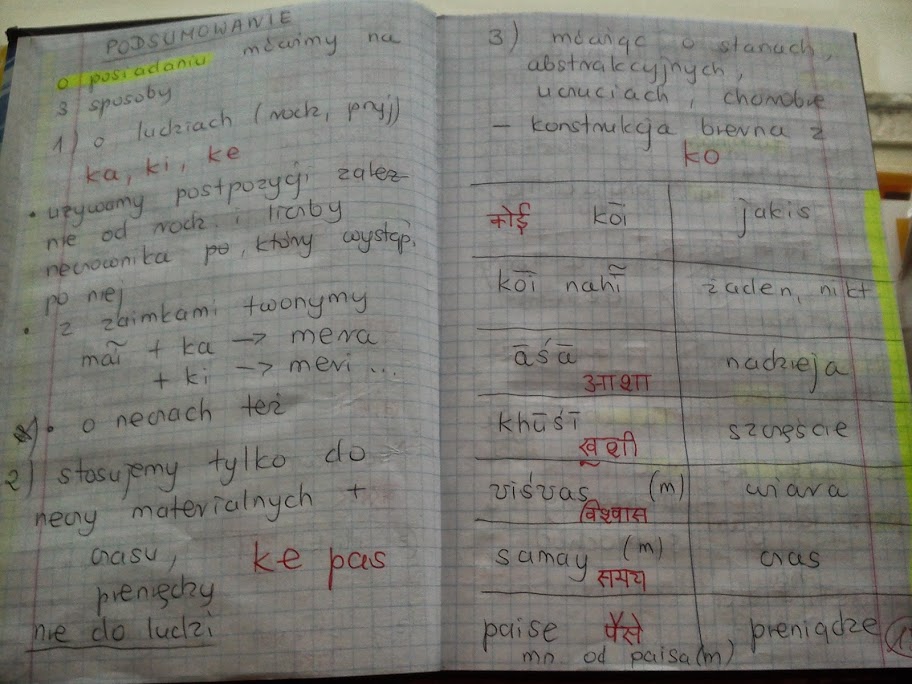 PODSUMOWANIE
o posiadaniu mówimy na
3 sposoby
1) o ludziach (rodz, przyj)
ka, ki, ke
• używamy postpozycji zależ-
nie od rodz. i liczby
rzeczownika, który występ.
po niej
• z zaimkami tworzymy
maĩ + ka → mera
+ ki → meri ...
• o rzeczach też
2) stosujemy tylko do
rzeczy materialnych +
czasu,
pieniędzy
ke pas
nie do ludzi
3) mówiąc o stanach,
abstrakcyjnych,
uczuciach, chorobie
– konstrukcja bierna z
ko
कोई kōī jakis
kōī nahī̃ żaden, nikt
āśā आशा nadzieja
khūśī खुशी szczęście
viśvas (m) विश्वास wiara
samay (m) समय czas
paise पैसे pieniądze
mn. od paisa (m)